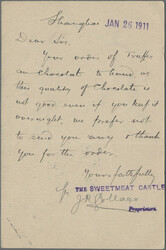 Shanghai JAN 26 1911
Dear Sir,
Your order of Truffes
au Chocolat to hand as
this quality of Chocolate is
not good even if you kept it
overnight, we prefer not
to send you any & thank
you for the order.
Yours faithfully
THE SWEETMEAT CASTLE
Proprietors.